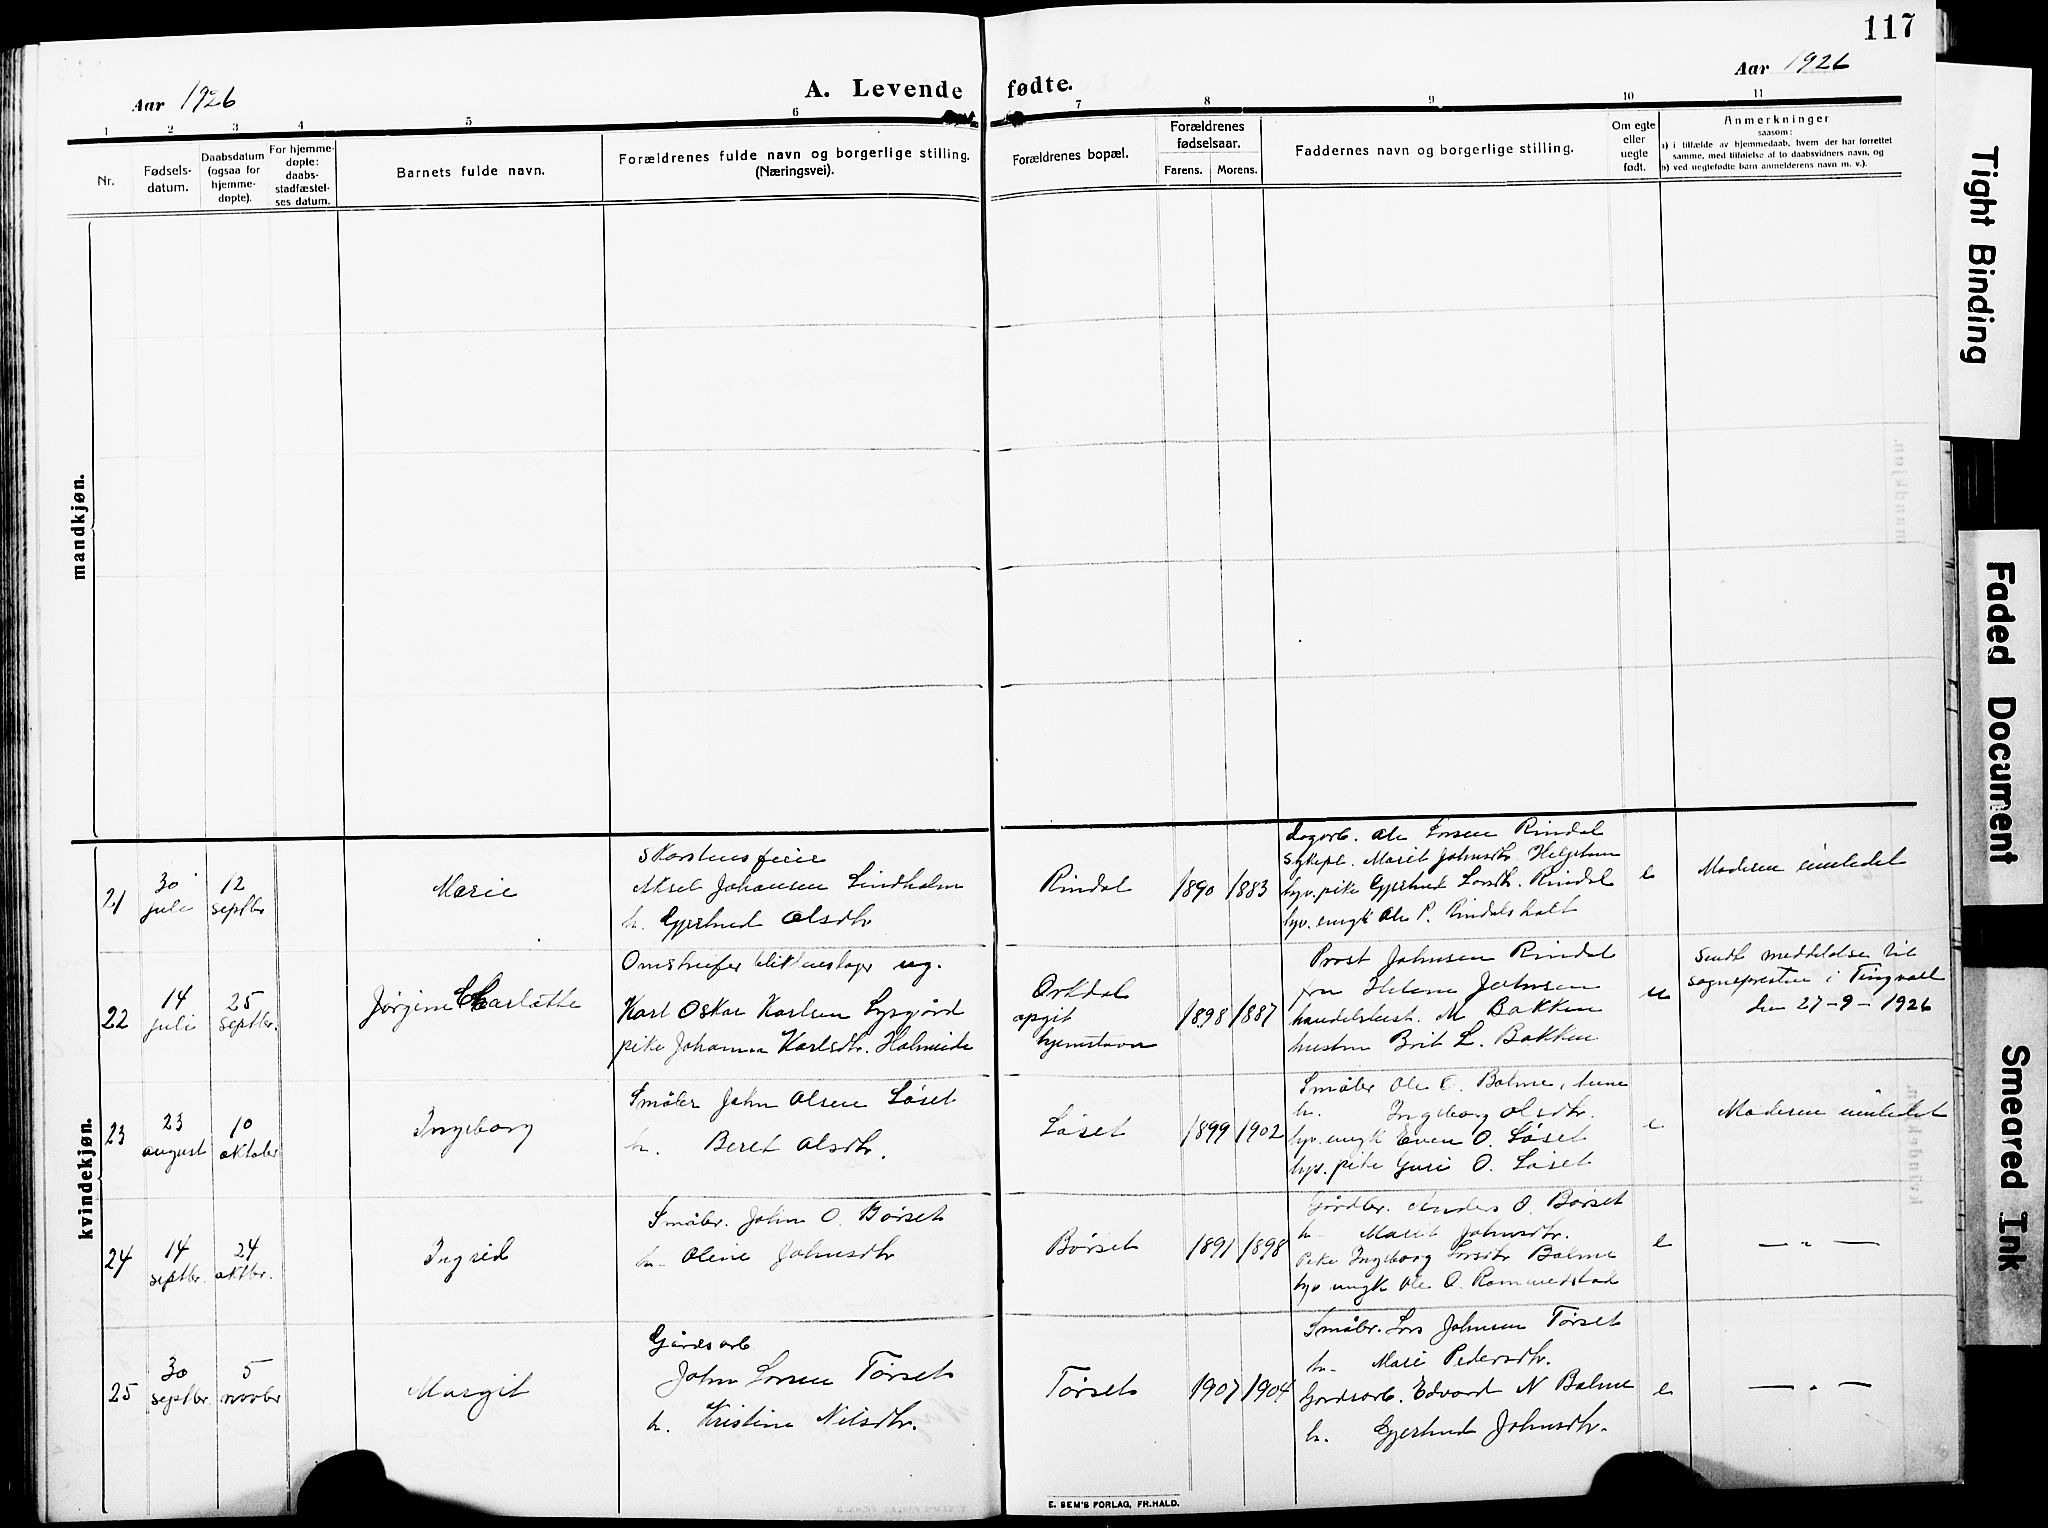 117
Aar 1926
A. Levende fødte.
Aar 1926
1 2 3 4 5 6 7 8 9 10 11
Nr.
Fødsels-
datum.
Daabsdatum
(ogsaa for
hjemme-
døpte).
For hjemme-
døpte:
daabs-
stadfæstel-
ses datum.
Barnets fulde navn.
Forældrenes fulde navn og borgerlige stilling.
(Næringsvei).
Forældrenes bopæl.
Forældrenes
fødselsaar.
Farens. Morens.
Faddernes navn og borgerlige stilling.
Om egte
eller
uegte
født.
Anmerkninger
saasom:
a) i tilfælde av hjemmedaab, hvem der har forrettet
samme, med tilføielse af to daabsvidners navn, og
b) ved uegtefødte barn anmelderens navn m. v.).
mandkjøn.
kvindekjøn.
21
30
juli
12
septbr
Marie
Skorstensfeier
Aksel Johansen Lindholm
h. Gjertrud Olsdtr
Rindal
1890 1883
Dagarb. Ole Larsen Rindal
Sykepl. Marit Johnsdtr. Helgetun
ugv. pike Gjertrud Larsdtr. Rindal
ugv. ungk Ole P. Rindalsholt
e
Moderen innledet
22
14
juli
25
septbr.
Jørgine Charlotte
Omstreifer blikkenslager ug.
Karl Oskar Karlsen Lysgård
pike Johanna Karlsdtr. Halmeide
Orkdal
opgit
hjemstavn
1898 1887
Prost Johnsen Rindal
fru Helene Johnsen
handelsbest. M Bakken
hustru Brit L. Bakken
u
Sendt meddelelse til
sognepresten i Tingvoll
den 27-9-1926
23
23
august
10
oktober
Ingeborg
Småbr John Olsen Løset
h. Beret Olsdtr.
Løset
1899 1902
Småbr Ole O. Bolme,
h. Ingeborg Olsdtr.
ugv. ungk Even O. Løset
ugv. pike Guri O. Løset
e
Moderen innledet
24
14
septbr.
24
oktbr.
Ingrid
Småbr. John O. Børset
h. Oline Johnsdtr
Børset
1891 1898
Gårdbr. Anders O. Børset
h. Marit Johnsdtr.
Pike Ingeborg Larsdtr Bolme
ugv ungk Ole O. Rommedstad
e
— „ —
25
30
septbr
5
novbr
Margit
Gårdsarb.
John Larsen Tørset
h. Kristine Nilsdtr.
Tørset
1907 1904
Småbr. Lars Johnsen Tørset
h. Mari Pedersdtr.
Gardsarb. Edvard N Bolme
h. Gjertrud Johnsdtr.
e
— „ —
E. SEM'S FORLAG, FR.HALD.
Tight Binding
Faded Document
Smeared Ink